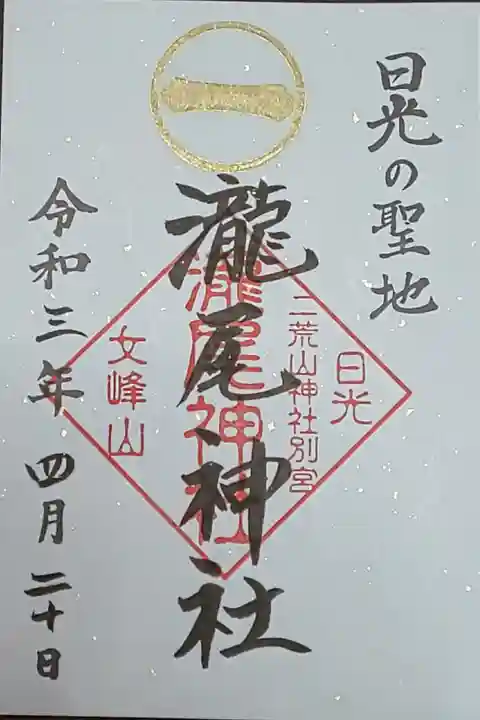 日光の聖地
瀧尾神社
日光
二荒山神社別宮
瀧尾神社
女峰山
令和三年 四月二十日